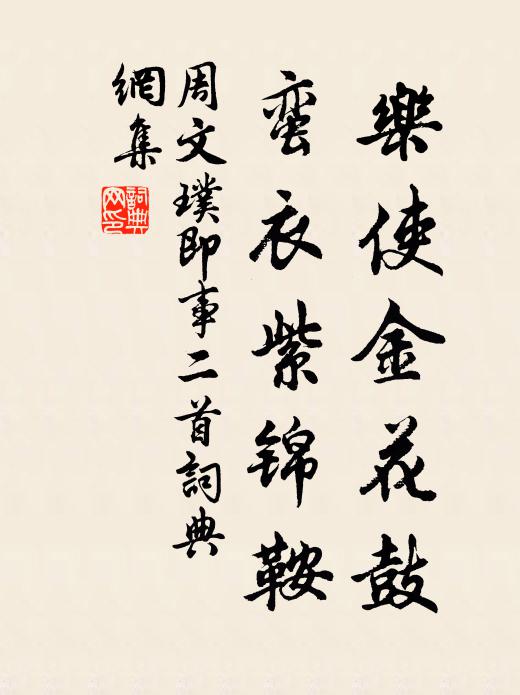 樂使金花鼓
蛮衣紫锦鞍
周文璞即事二首詞典
網集
詞典
网印